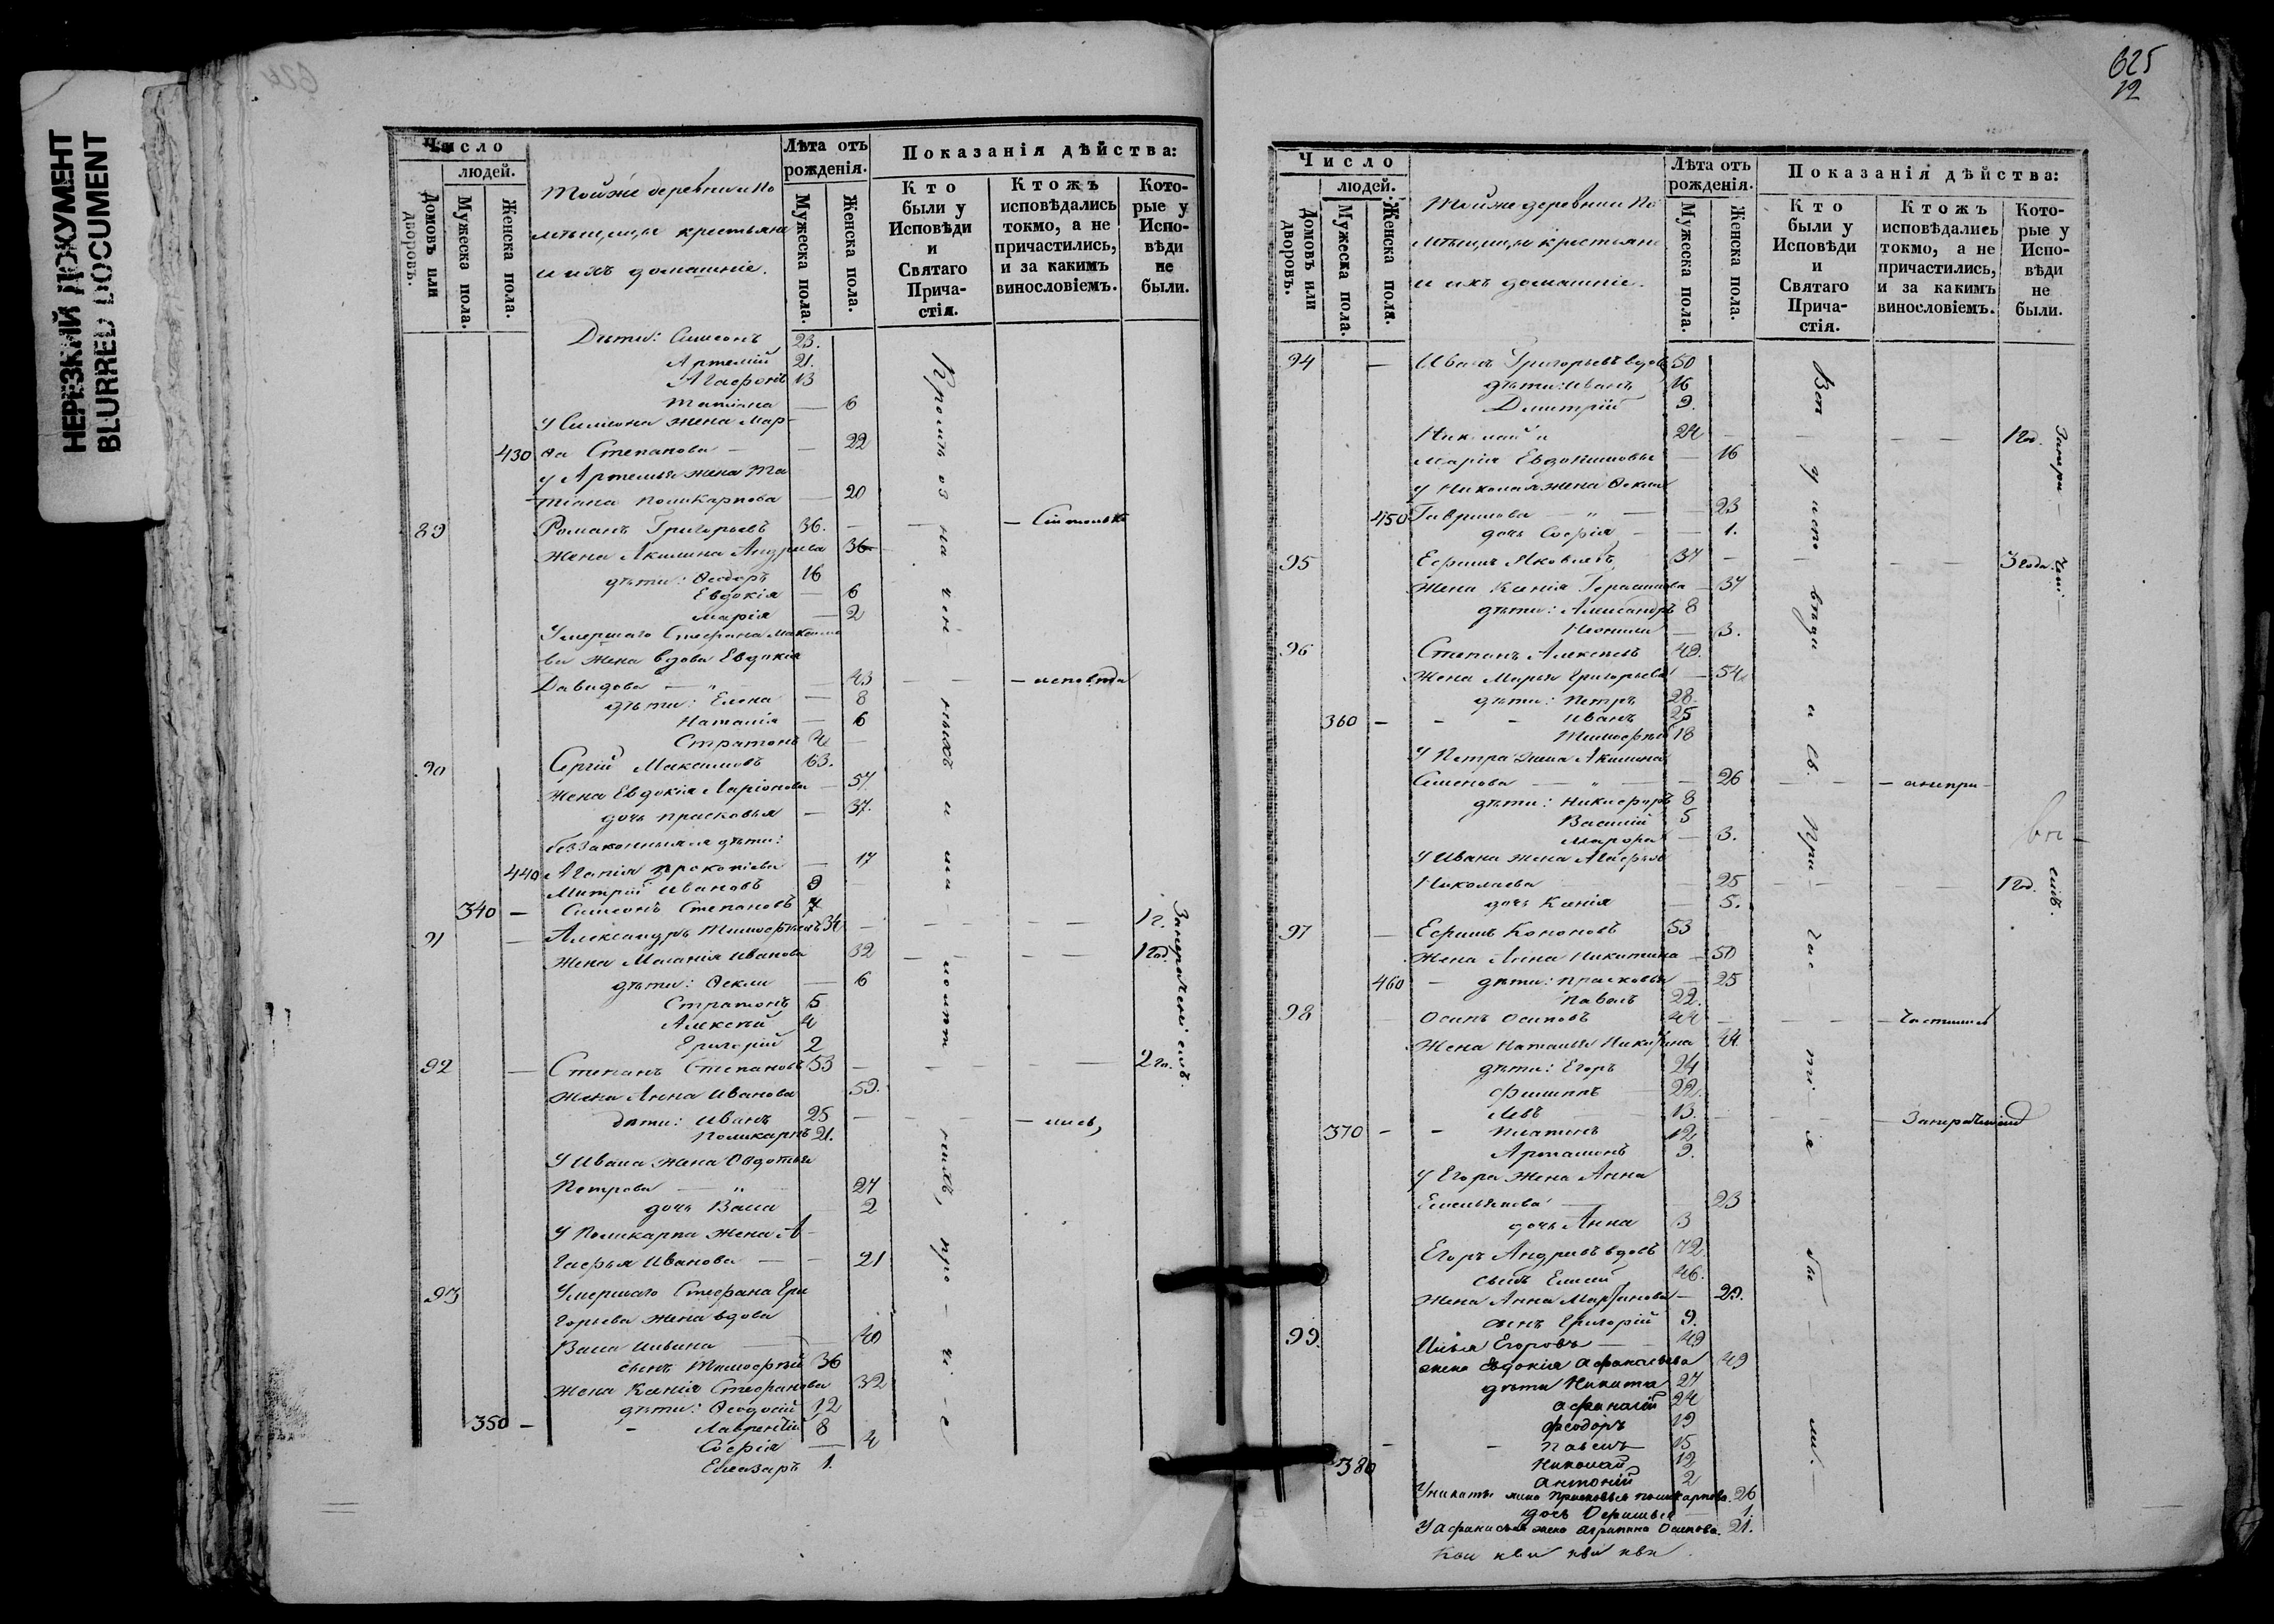 НЕРЕЗКИЙ ДОКУМЕНТ
BLURRED DOCUMENT
624
Число
людей.
Домовъ или дворовъ.
Мужеска пола.
Женска пола.
Тойже деревни по
мѣщицы крестьяне
и ихъ домашніе.
Лѣта отъ рожденія.
Мужеска пола.
Женска пола.
Показанія дѣйства:
Кто были у Исповѣди и Святаго Причастія.
Ктожъ исповѣдались токмо, а не причастились, и за какимъ винословіемъ.
Которые у Исповѣди не были.
Дѣти: Симеонъ 23.
Артемій 21.
Агафонъ 13
Татіана — 6
У Симеона жена Мар-
430 ѳа Степанова — — 22
у Артемья жена Та
тіана Поликарпова — 20
89 Романъ Григорьевъ 36. —
жена Акилина Андреева 36
дѣти: Ѳеодоръ 16
Евдокія — 6
Марія — 2
Умершаго Стефана Максимо
ва жена вдова Евдокія
Давидова — " — 43 — исповѣда
дѣти: Елена — 8
Наталія — 6
Стратонъ 4 —
90 Сергій Максимовъ 63.
Жена Евдокія Ларіонова — 57
дочь Прасковья — 37.
беззаконныя дѣти:
440 Агапія Прокопіева — 17
Митрій Ивановъ 9 —
340 — Симеонъ Степановъ 7
91 — Александръ Тимофѣевъ 34 — 1 г.
жена Маланія Иванова 32 — 1 год.
дѣти: Ѳекла — 6
Стратонъ 5
Алексѣй 4
Григорій 2
92 — Степанъ Степановъ 53 — 2 го.
жена Анна Иванова 59.
дѣти: Иванъ 25 — лись,
Поликарпъ 21.
У Ивана жена Овдотья
Петрова — " — 27
дочь Васса 2
У Поликарпа жена А-
гафья Иванова — — 21
93 Умершаго Стефана Гри
горьева жена вдова
Васса Ильина — 40
сынъ Тимофѣй 36
жена Ксенія Стефанова 32
дѣти: Ѳеодосій 12
350 — - Лаврентій 8
Софія — 4
Елеазаръ 1.
Кромѣ оз на чен ныхъ и ма лолѣт нихъ, про — чі — е
За нераченіемъ.
625
12
Число
людей.
Домовъ или дворовъ.
Мужеска пола.
Женска пола.
Тойже деревни По
мѣщицы крестьяне
и ихъ домашніе.
Лѣта отъ рожденія.
Мужеска пола.
Женска пола.
Показанія дѣйства:
Кто были у Исповѣди и Святаго Причастія.
Ктожъ исповѣдались токмо, а не причастились, и за какимъ винословіемъ.
Которые у Исповѣди не были.
94 — Иванъ Григорьевъ вдовъ 50
дѣти: Иванъ 16
Дмитрій 9.
Николай и 24 — — — 1 год.
Марія Евдокимовы — 16
у Николая жена Ѳекла
450 Гаврилова — " — — 23
дочь Софія — — 1.
95 Ефимъ Яковлевъ 37 — — — 3 года.
жена Ксенія Герасимова — 37
дѣти: Александръ 8
Неонила — 3.
96 Степанъ Алексѣевъ 49.
жена Марья Григорьева — 54
дѣти: Петръ 28.
360 — - - Иванъ 25
Тимофѣй 18
У Петра жена Акилина
Семенова — " — — 26 — — а не при-
дѣти: Никифоръ 8
Василій 5
Марѳа — 3.
У Ивана жена Агафья
Николаева — 25 — — 1 год.
дочь Ксенія — 5.
97 — Ефимъ Кононовъ 53
жена Анна Никитина — 50
460 — дѣти: Прасковья — 25
Павелъ 22.
98 — Осипъ Осиповъ 44 — — — частились
жена Наталья Никитина 44
дѣти: Егоръ 24
Филиппъ 22.
Левъ — 13. — — За нераченіемъ
370 - - Платонъ 12
Артамонъ 9.
у Егора жена Анна
Емельянова — 23
дочь Анна 3
Егоръ Андреевъ вдовъ 72
сынъ Елисей 46.
жена Анна Мартинова — 29.
сынъ Григорій 9.
99. Илья Егоровъ — 49
жена Евдокія Афанасьева 49
дѣти Никита 27
Афанасій 24
Феодоръ 19
- - Павелъ 15
380 Николай 12
Антоній 2
У Никиты жена Прасковья Поликарпова. 26
дочь Ефимья — 1.
У Афанасья жена Агрипина Осипова. 21.
Вси у испо вѣди и Св. При час ті я бы — ли. —
За нера — чені — емъ.